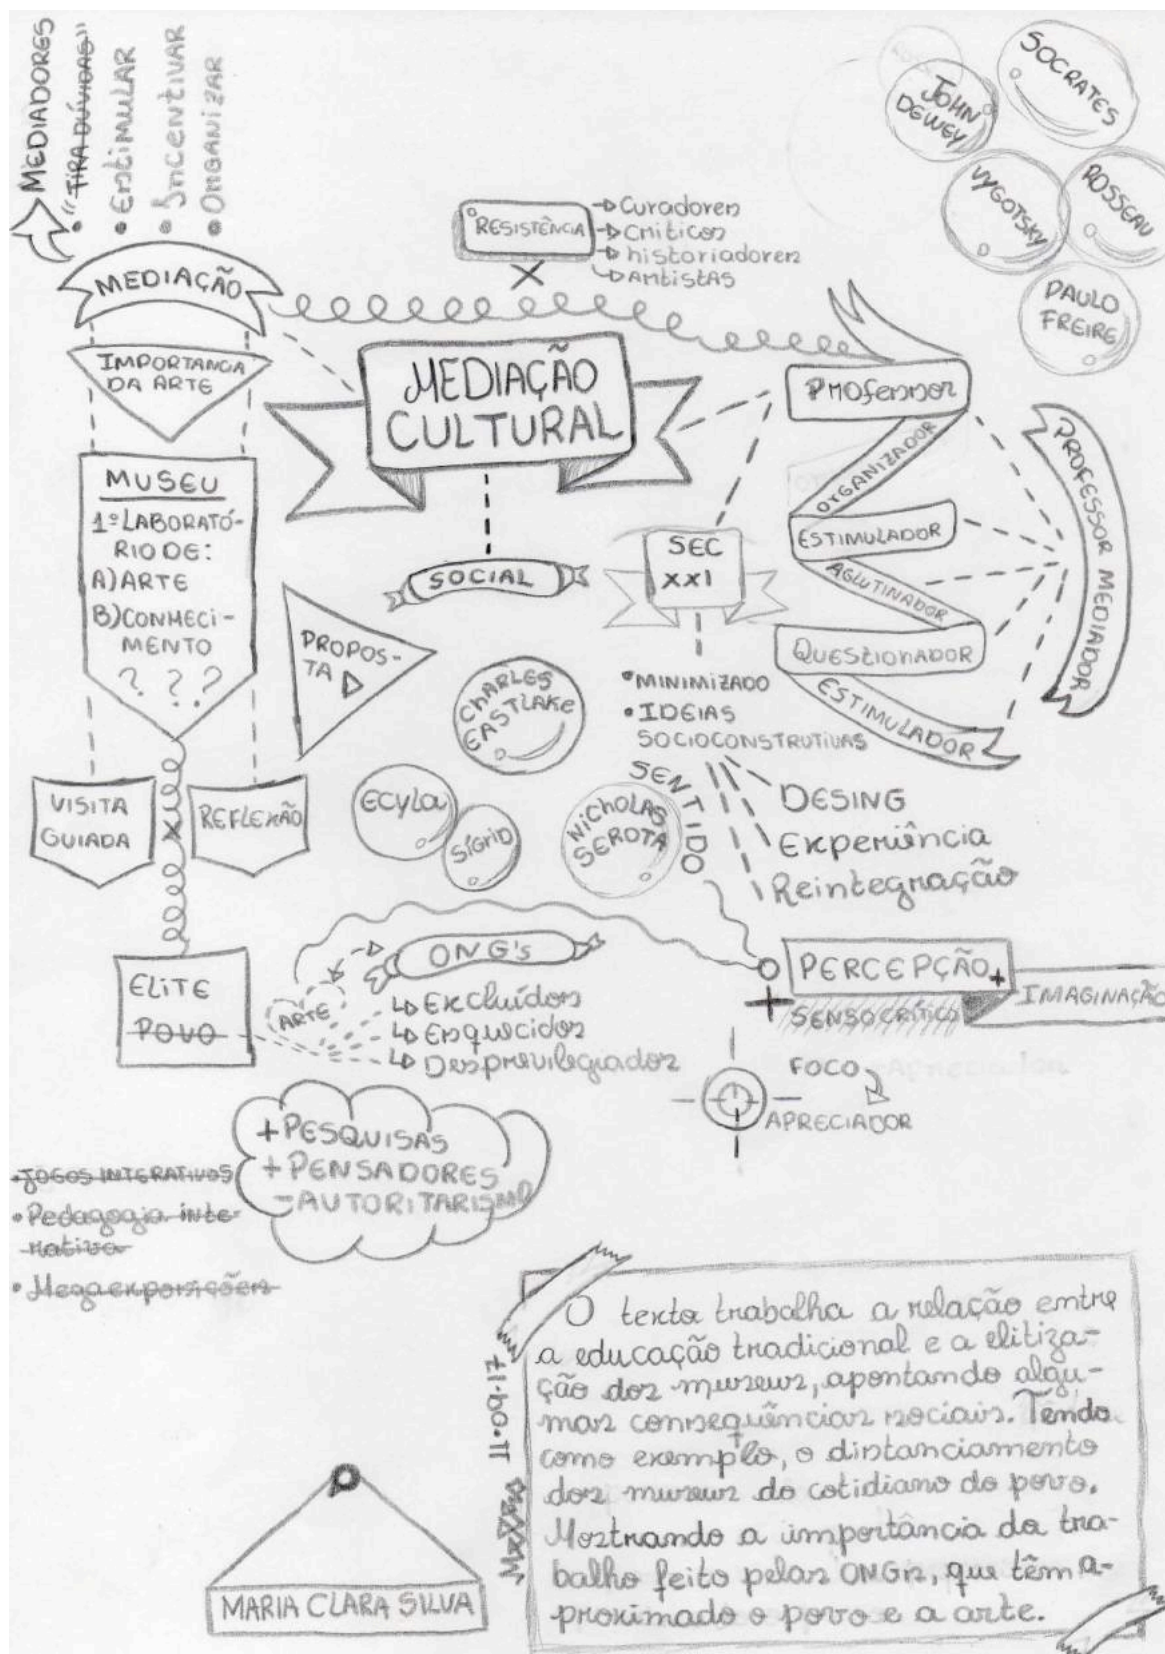 MEDIADORES
• "TIRA DÚVIDAS"
• Estimular
• Incentivar
• ORGANIZAR
MEDIAÇÃO
IMPORTANCIA
DA ARTE
MUSEU
1º LABORATÓ-
RIO DE:
A) ARTE
B) CONHECI-
MENTO
? ? ?
VISITA
GUIADA
X
REFLEXÃO
ELITE
POVO
RESISTÊNCIA
Curadores
Críticos
historiadores
ARtistAS
X
MEDIAÇÃO
CULTURAL
SOCIAL
PROPOS-
TA
CHARLES
EASTLAKE
ECYLA
SÍGRID
NICHOLAS
SEROTA
SENTIDO
JOHN
DEWEY
SOCRATES
VYGOTSKY
ROSSEAU
PAULO
FREIRE
Professor
ORGANIZADOR
ESTIMULADOR
AGLUTINADOR
QUEStIONADOR
ESTIMULADOR
PROFESSOR MEDIADOR
SEC
XXI
• MINIMIZADO
• IDEIAS
SOCIOCONSTRUTIVAS
DESING
Experiência
Reintegração
ARTE
ONG's
Excluídos
Esquecidos
Desprevilegiados
PERCEPÇÃO +
IMAGINAÇÃO
+
SENSO CRÍTICO
FOCO
APRECIADOR
+ PESQUISAS
+ PENSADORES
- AUTORITARISMO
• JOGOS INTERATIVOS
• Pedagogia inte-
rativa
• Mega exposições
O texto trabalha a relação entre
a educação tradicional e a elitiza-
ção dos museus, apontando algu-
mas consequências sociais. Tendo
como exemplo, o distanciamento
dos museus do cotidiano do povo.
Mostrando a importância do tra-
balho feito pelas ONGs, que têm a-
proximado o povo e a arte.
11.09.17
MARIA CLARA SILVA